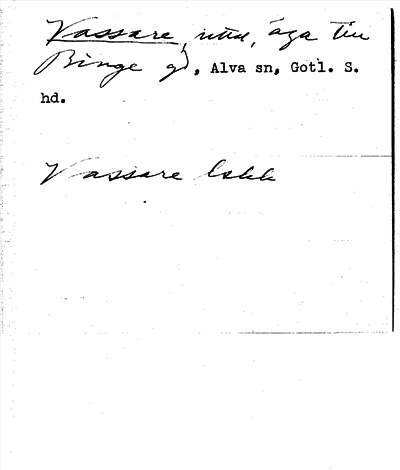 Vassare, utäd, äga till
Binge gd, Alva sn, Gotl. S.
hd.
Vassare lskk